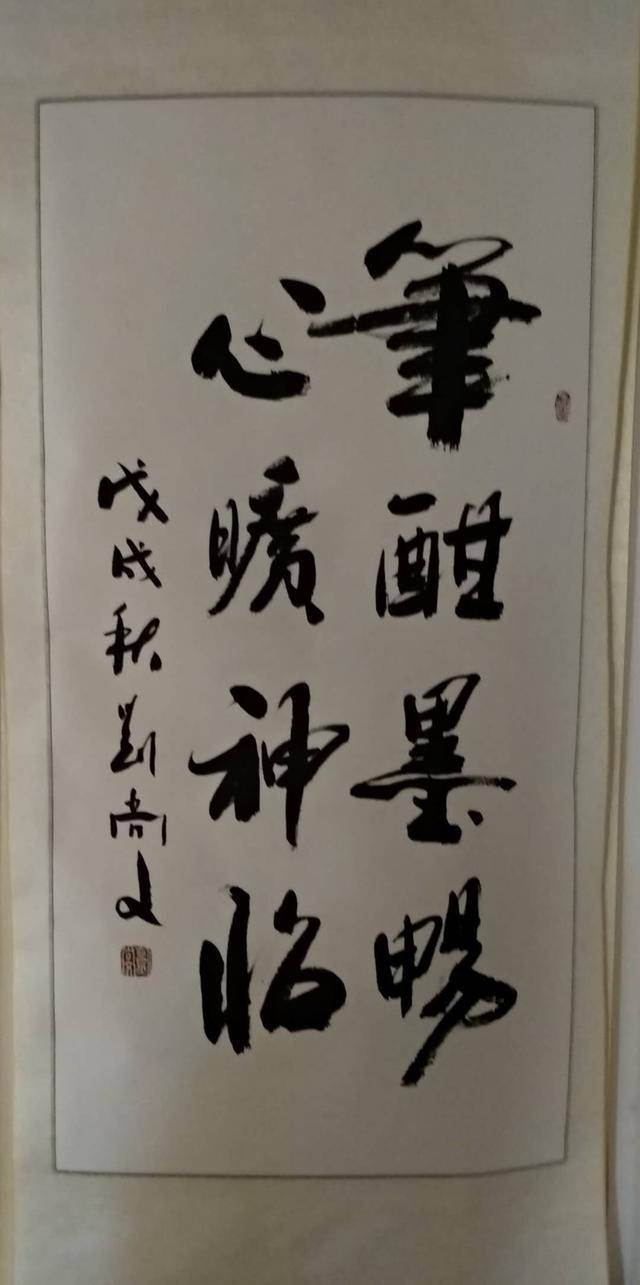 筆酣墨暢
心曠神怡
戊戌秋劉尚文